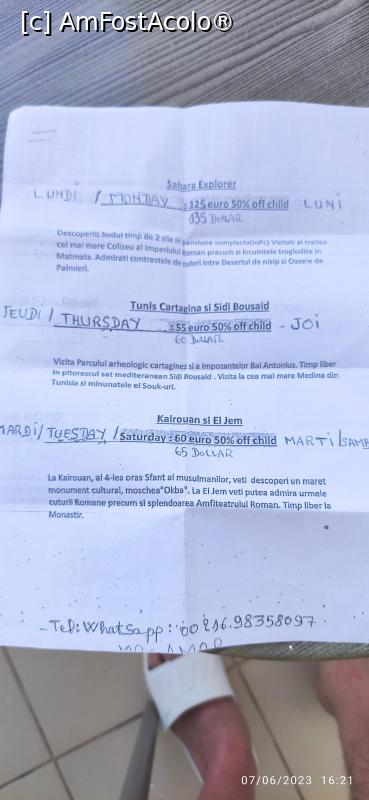 [c] AmFostAcolo®
Sahara Explorer
LUNDI / MONDAY : 125 euro 50% off child LUNI
135 DOLLAR
Descoperiti Sudul timp de 2 zile in pensiune completa(inPc) Vizitati al treilea
cel mai mare Colizeu al Imperiului Roman precum si locuintele troglodite in
Matmata. Admirati contrastele de culori intre Desertul de nisip si Oazele de
Palmieri.
Tunis Cartagina si Sidi Bousaid
JEUDI / THURSDAY : 55 euro 50% off child - JOI
60 DOLLAR
Vizita Parcului arheologic cartaginez si a impozantelor Bai Antonius. Timp liber
in pitorescul sat mediteranean Sidi Bousaid . Vizita la cea mai mare Medina din
Tunisia si minunatele ei Souk-uri.
Kairouan si El Jem
MARDI/ TUESDAY / Saturday : 60 euro 50% off child MARTI/SAMB
65 DOLLAR
La Kairouan, al 4-lea oras Sfant al musulmanilor, veti descoperi un maret
monument cultural, moscheea"Okba". La El Jem veti putea admira urmele
cuturii Romane precum si splendoarea Amfiteatrului Roman. Timp liber la
Monastir.
- Tel: Whatsapp : 00 216.98358097
07/06/2023 16:21